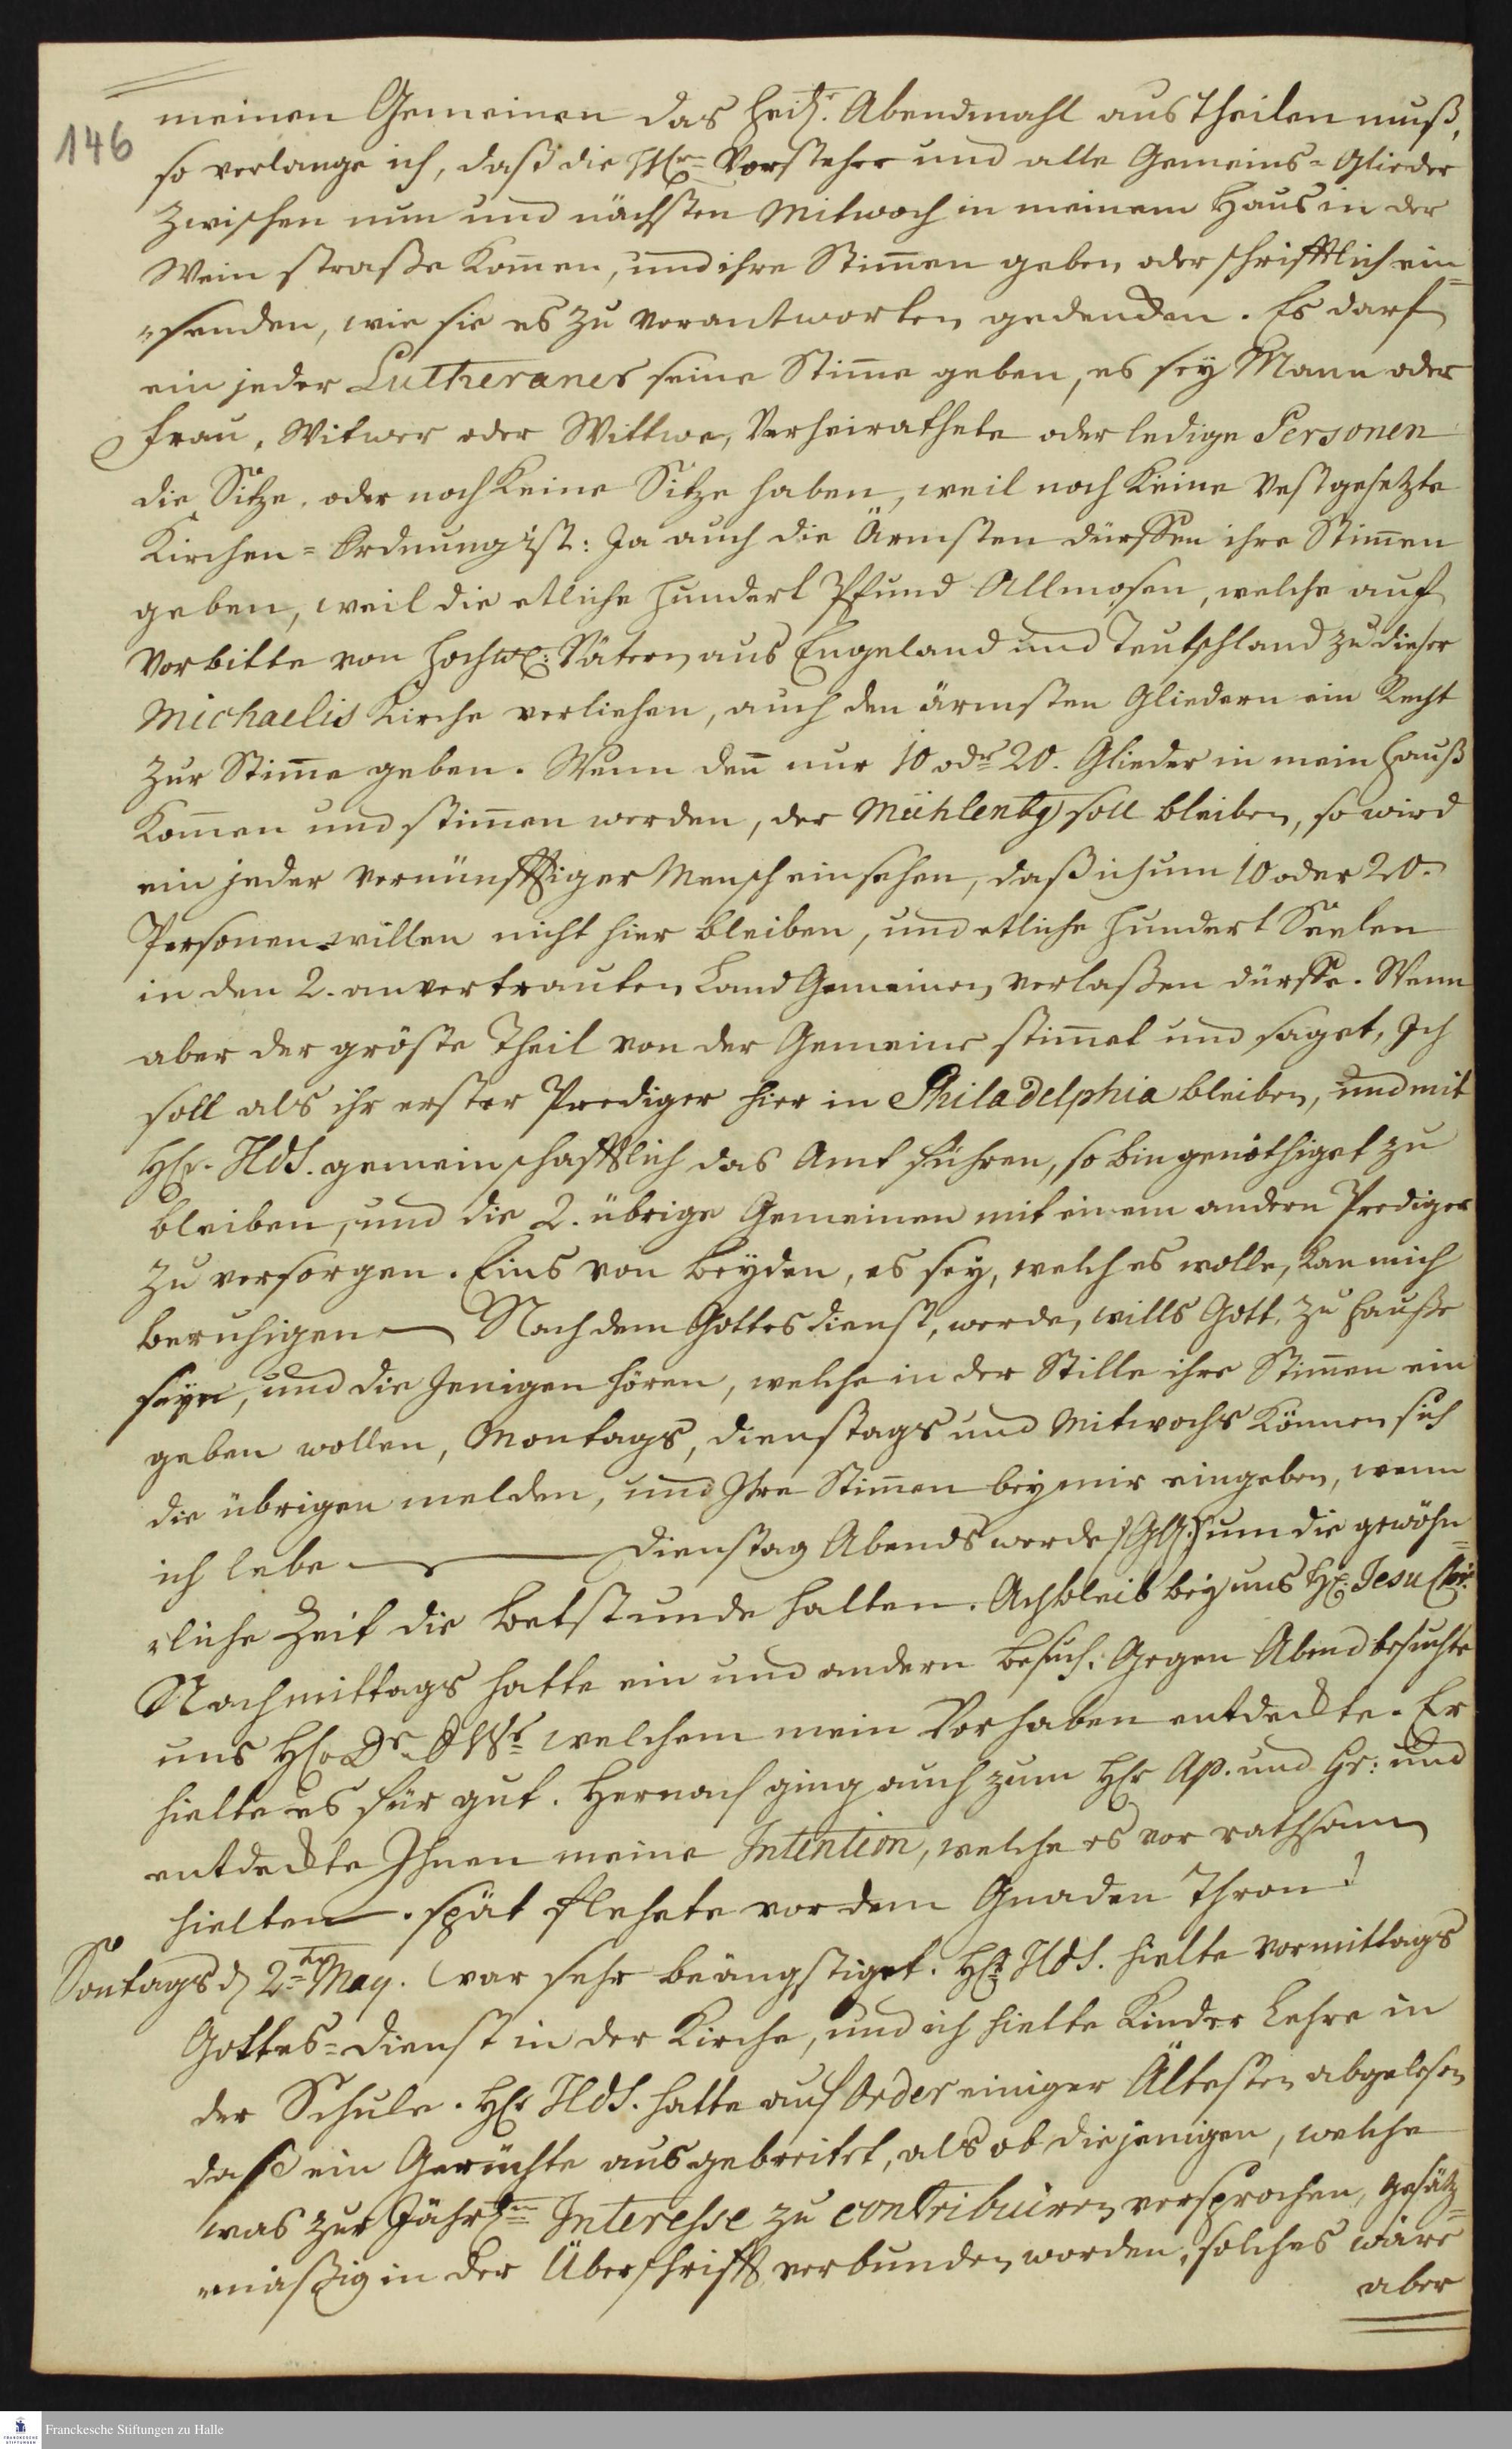 146
meinen Gemeinen das heil. Abendmahl austheilen muß,
so verlange ich, daß die Vorsteher und alle Gemeins=Glieder
zwischen nun und nächsten Mitwoch in meinem Haus in der
Wein straße kom̄en, und ihre Stim̄en geben oder schrifftlich ein=
=senden, wie sie es zu verantworten gedencken. Es darf
ein jeder Lutheraner seine Stim̄e geben, es sey Mann oder
Frau, Witwer oder Wittwe, Verheirathete oder ledige Personen
die Sitze, oder noch keine Sitze haben, weil noch keine vestgesetzte
Kirchen=Ordnung ist: Ja auch die Ärmsten dürffen ihre Stim̄en
geben, weil die etliche hundert Pfund Allmosen, welche auf
Vorbitte von Hochw: Vätern aus Engeland und Teutschland zu dieser
Michaelis Kirche verliehen, auch den ärmsten Gliedern ein Recht
zur Stim̄e geben. Wenn den̄ nur 10 odr 20. Glieder in mein Hauß
kom̄en und stim̄en werden, der Mühlenbg soll bleiben, so wird
ein jeder vernünfftiger Mensch einsehen, daß ich um 10 oder 20.
Personen willen nicht hier bleiben, und etliche hundert Seelen
in den 2. anvertrauten Land Gemeinen verlaßen dürffe. Wenn
aber der gröste Theil von der Gemeine stim̄et und saget, Ich
soll als ihr erster Prediger hier in Philadelphia bleiben, und mit
Hr. Hds. gemeinschafftlich das Amt führen, so bin genöthiget zu
bleiben, und die 2. übrige Gemeinen mit einem andern Prediger
zu versorgen. Eins von beyden, es sey, welches wolle, kan mich
beruhigen — Nach dem Gottesdienst, werde, wills Gott, zu Hauße
seyn, und die Jenigen hören, welche in der Stille ihre Stim̄en ein
geben wollen, Montags, Dienstags und Mitwochs können sich
die übrigen melden, und Ihre Stim̄en bey mir eingeben, wenn
ich lebe — Dienstag Abends werde um die gewöhn=
=liche Zeit die Betstunde halten. Ach bleib bey uns H: Jesu Chr:
Nachmittags hatte ein und andern Besuch. Gegen Abend besuchte
uns Hr Dr welchem mein Vorhaben entdeckte. Er
hielte es für gut. Hernach ging auch zum Hr Ap. und Gr: und
entdeckte Ihnen meine Intention, welche es vor rathsam
hielten —. spät flehete vor dem Gnaden Thron!
Sontags d 2ten May. War sehr beängstiget. Hr Hds. hielte Vormittags
Gottes=dienst in der Kirche, und ich hielte Kinder Lehre in
der Schule. Hr Hds. hatte auf Order einiger Ältesten abgelesen
daß ein Gerüchte ausgebreitet, als ob diejenigen, welche
was zur Jährln Interesse zu contribuiren versprochen, gesätz=
=mäßig in der Überschrifft verbunden worden, solches wäre
aber
Franckesche Stiftungen zu Halle